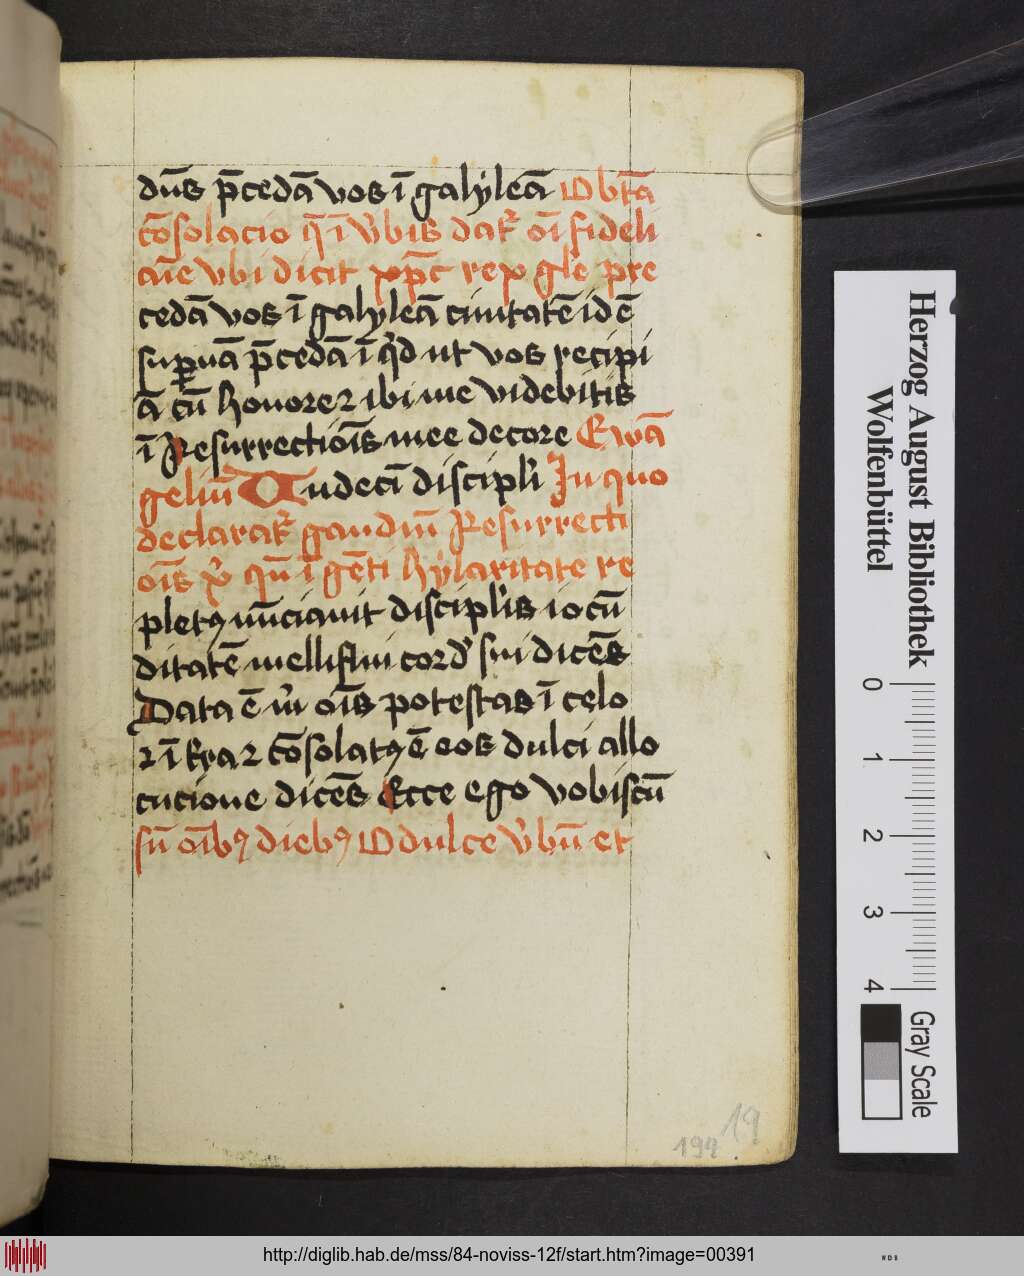 dn̄s p̄cedā vos ī galyleā O bt̄a
cōsolacio q̄ ī v̓bis dat᷑ oī fideli
aīe vbi dicit xp̄c rex gl̓e pre
cedā vos ī galyleā ciuitatē id ē
sup̱nā p̄cedā ī q̓d ut vos recipi
ā cū honore ⁊ ibi me videbitis
ī Resurrectiōis mee decore Ewā
geliū Vndecī discipl̓i In quo
declarat᷑ gaudiū Resurrecti
ōis xp̓i qn̄ ī gēti hylaritate re
pletꝰ nūciauit discipl̓is iocū
ditatē melliflui cord̓ sui dicēs
Data ē m̓ ois potestas ī celo
⁊ ī t̓ra ⁊ cōsolatꝰ ē eos dulci allo
cucione dicēs Ecce ego vobiscū
sū oībꝰ diebꝰ O dulce v̓bū et
19
199
Herzog August Bibliothek
Wolfenbüttel
0 1 2 3 4
Gray Scale
http://diglib.hab.de/mss/84-noviss-12f/start.htm?image=00391